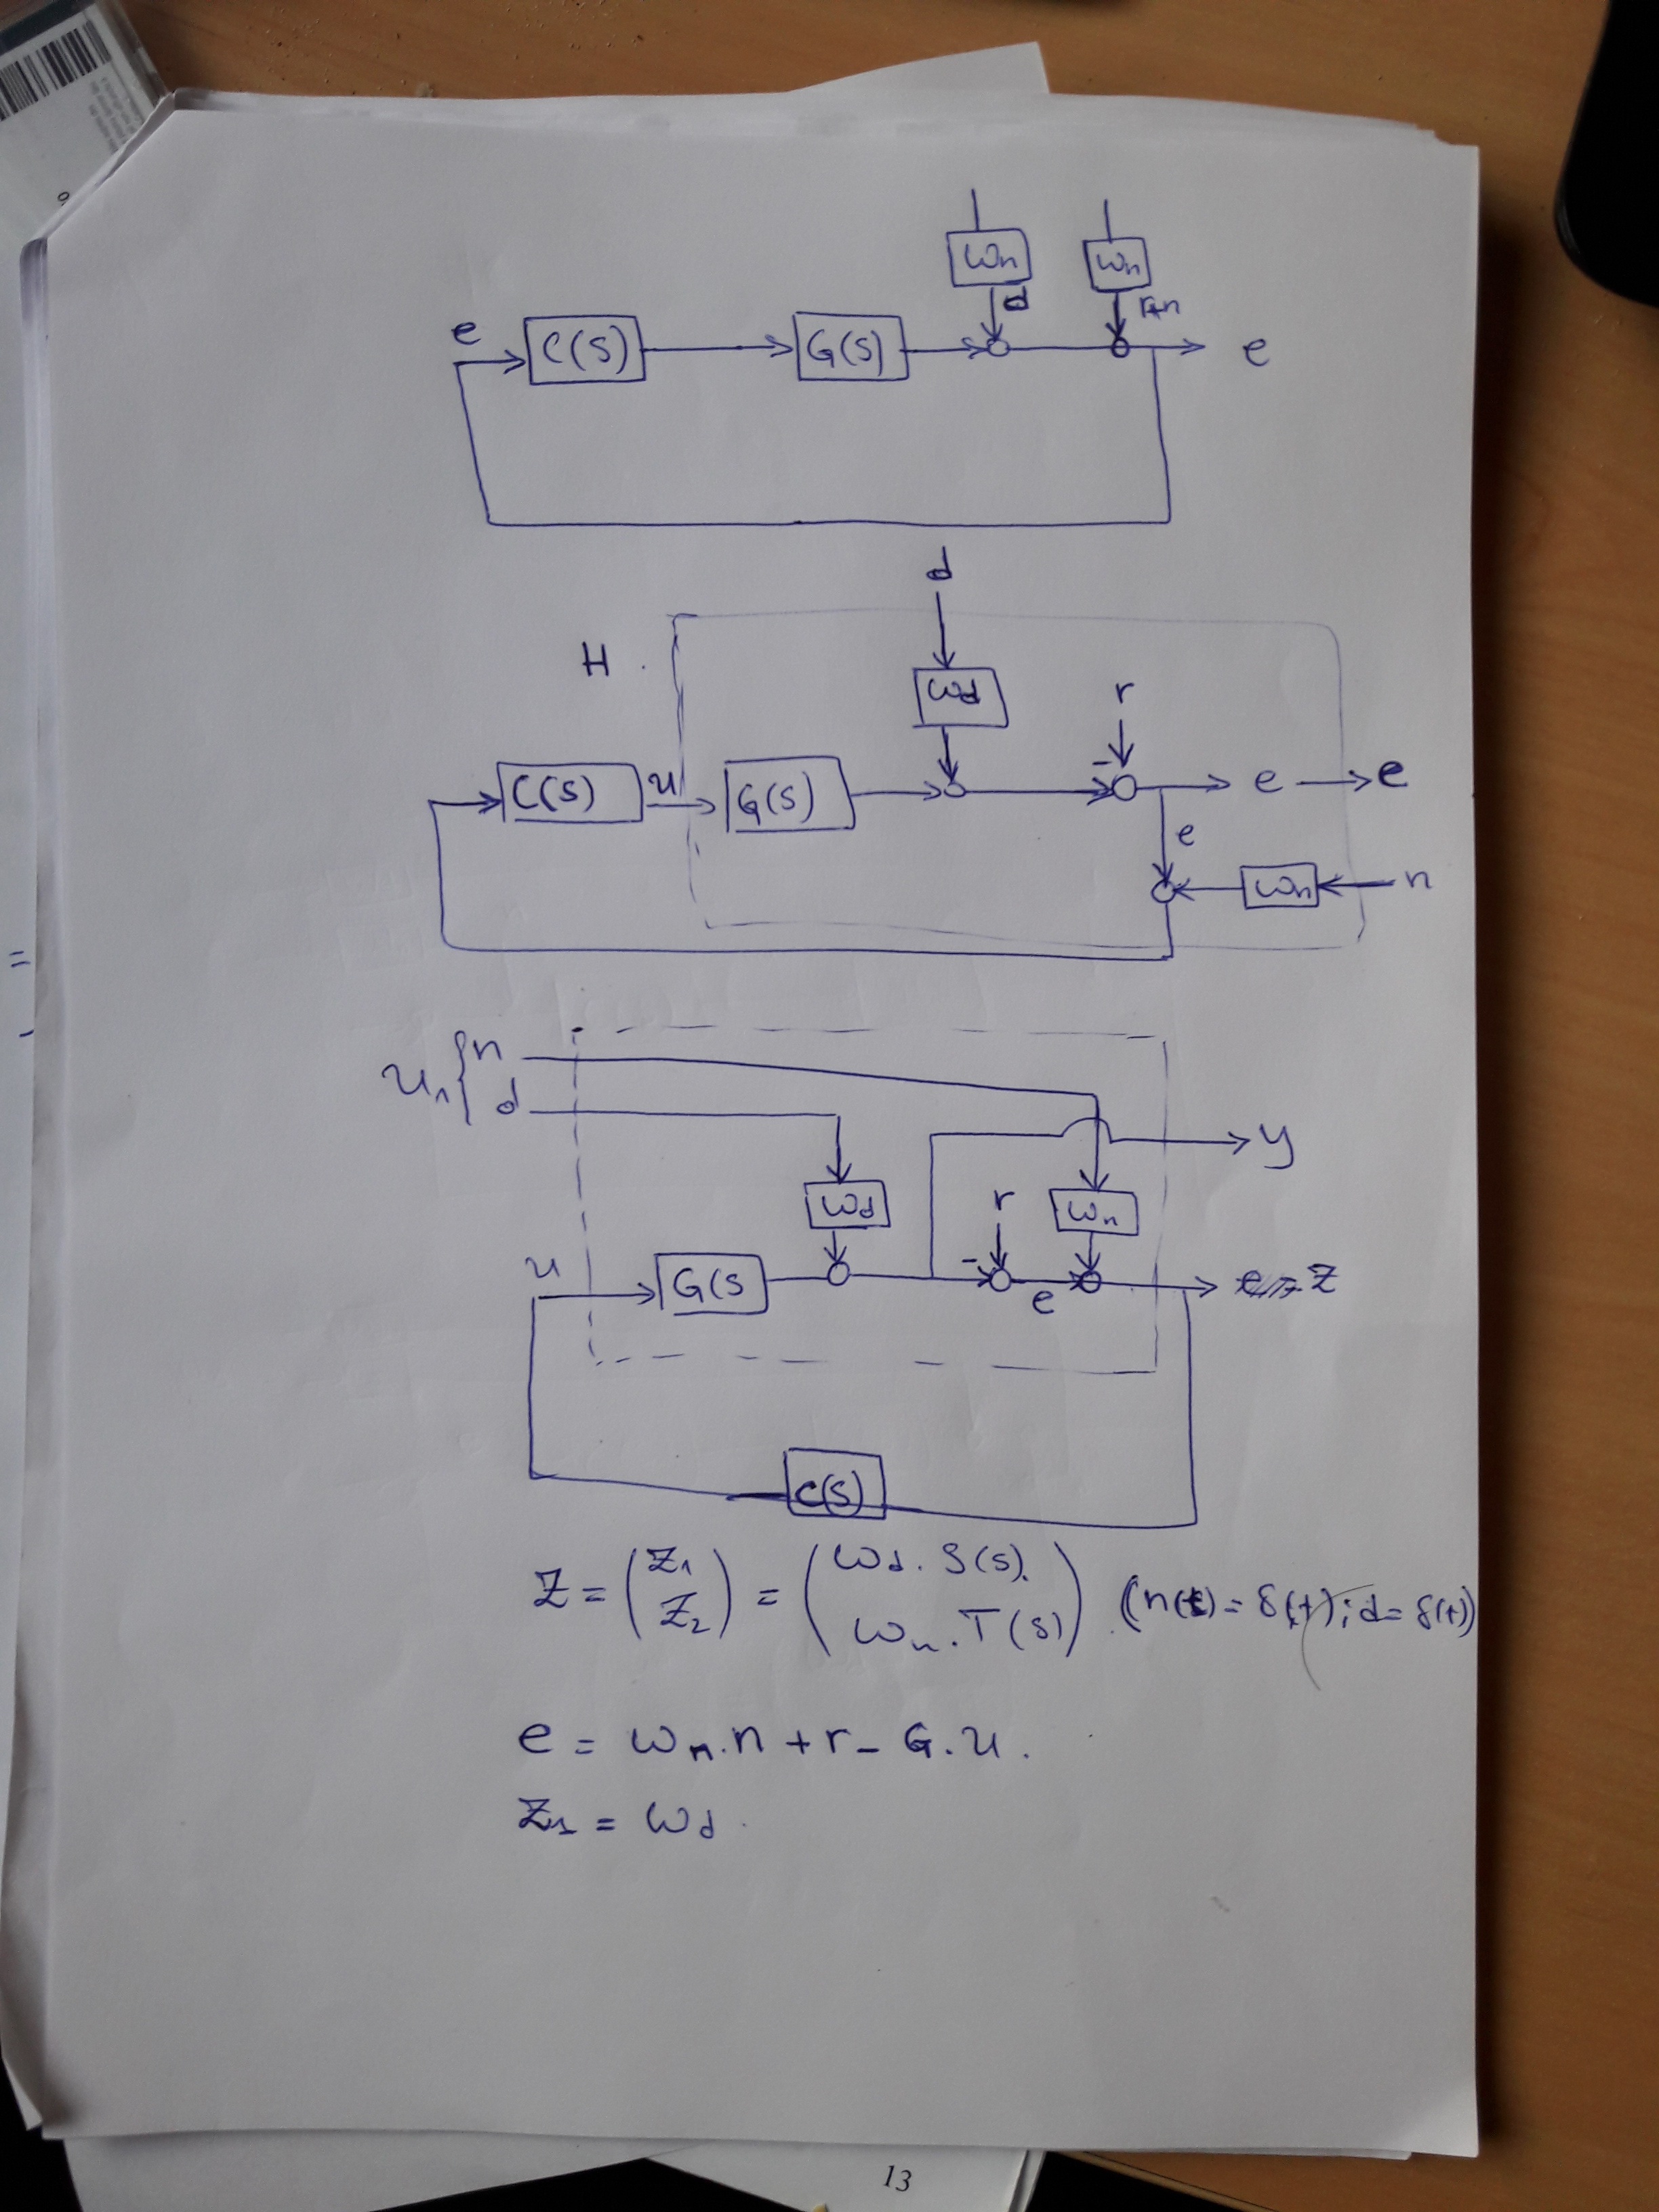 e
C(s)
G(s)
Wn
d
Wn
r+n
e
H
C(s)
u
G(s)
Wd
d
r
e
e
e
Wn
n
n
d
u
G(s
Wd
r
e
Wn
y
z
C(s)
Z = (Z1 Z2) = (Wd. S(s). Wn. T(s)) (n(t) = δ(t); d = δ(t))
e = Wn.n + r - G.u.
Z1 = Wd.
13